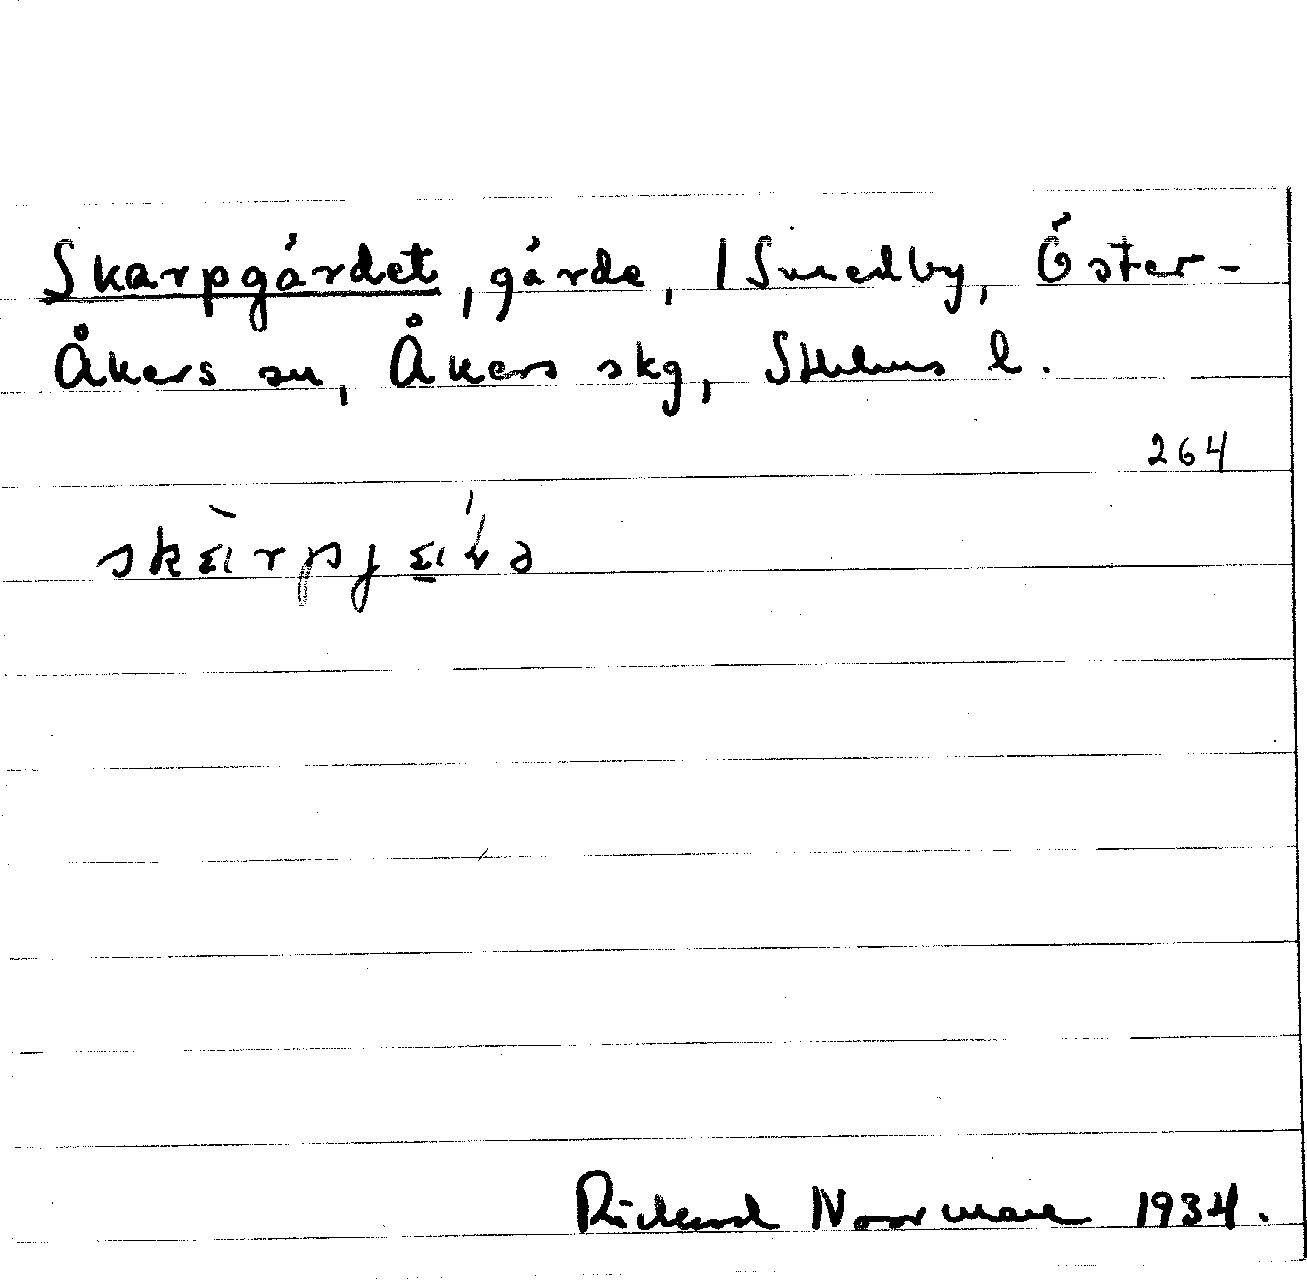 Skarpgärdet, gärde, I Smedby, Öster-
Åkers sn, Åkers skg, Sthlms l.
264
Rickard Noorman 1934.